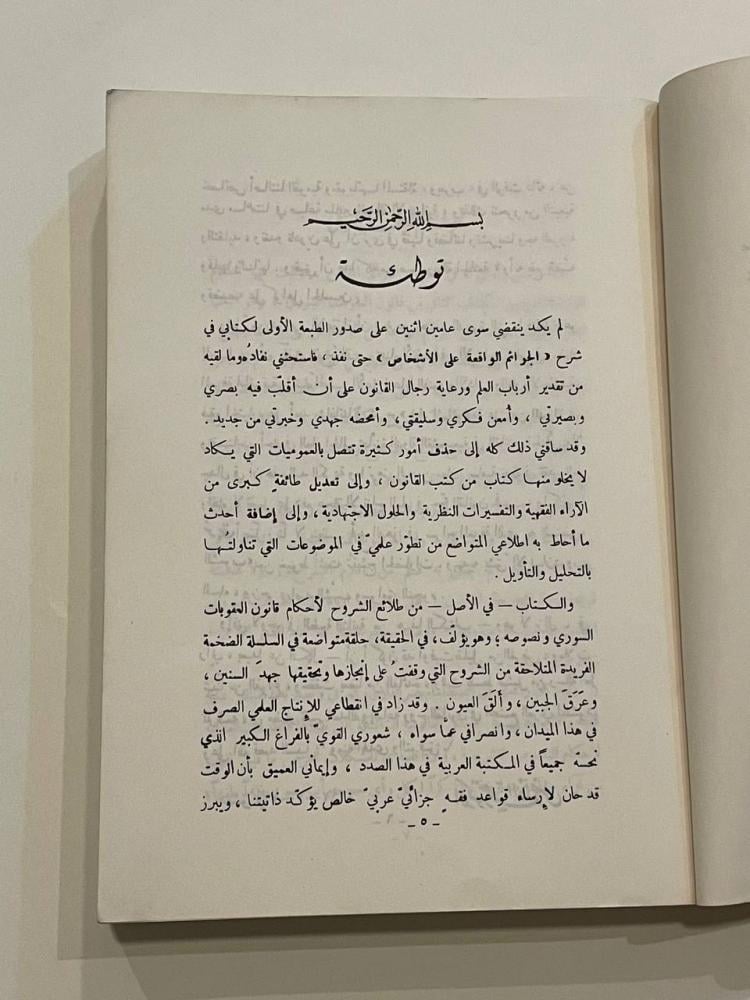 بسم الله الرحمن الرحيم
توطئة
لم يكد ينقضي سوى عامين اثنين على صدور الطبعة الأولى لكتابي في
شرح « الجرائم الواقعة على الأشخاص » حتى نفذ ، فاستحثني نفاذُه وما لقيه
من تقدير أرباب العلم ورعاية رجال القانون على أن أقلّب فيه بصري
وبصيرتي ، وأمعن فكري وسليقتي ، وأمحضه جهدي وخبرتي من جديد .
وقد ساقني ذلك كله إلى حذف أمور كثيرة تتصل بالعموميات التي يكاد
لا يخلو منها كتاب من كتب القانون ، وإلى تعديل طائفةٍ كبرى من
الآراء الفقهية والتفسيرات النظرية والحلول الاجتهادية ، وإلى إضافة أحدث
ما أحاط به اطلاعي المتواضع من تطوّر علميّ في الموضوعات التي تناولتُها
بالتحليل والتأويل .
والكتاب — في الأصل — من طلائع الشروح لأحكام قانون العقوبات
السوري ونصوصه ؛ وهو يؤلّف، في الحقيقة، حلقة متواضعة في السلسلة الضخمة
الفريدة المتلاحقة من الشروح التي وقفتُ على إنجازها وتحقيقها جهدَ السنين ،
وعَرَقَ الجبين ، وأَلَقَ العيون . وقد زاد في انقطاعي للإنتاج العلمي الصرف
في هذا الميدان ، وانصرافي عمّا سواه ، شعوري القويّ بالفراغ الكبير الذي
نحسّه جميعاً في المكتبة العربية في هذا الصدد ، وإيماني العميق بأن الوقت
قد حان لإرساء قواعد فقهٍ جزائيّ عربيّ خالص يؤكّد ذاتيتنا ، ويبرز
ـ ٥ ـ